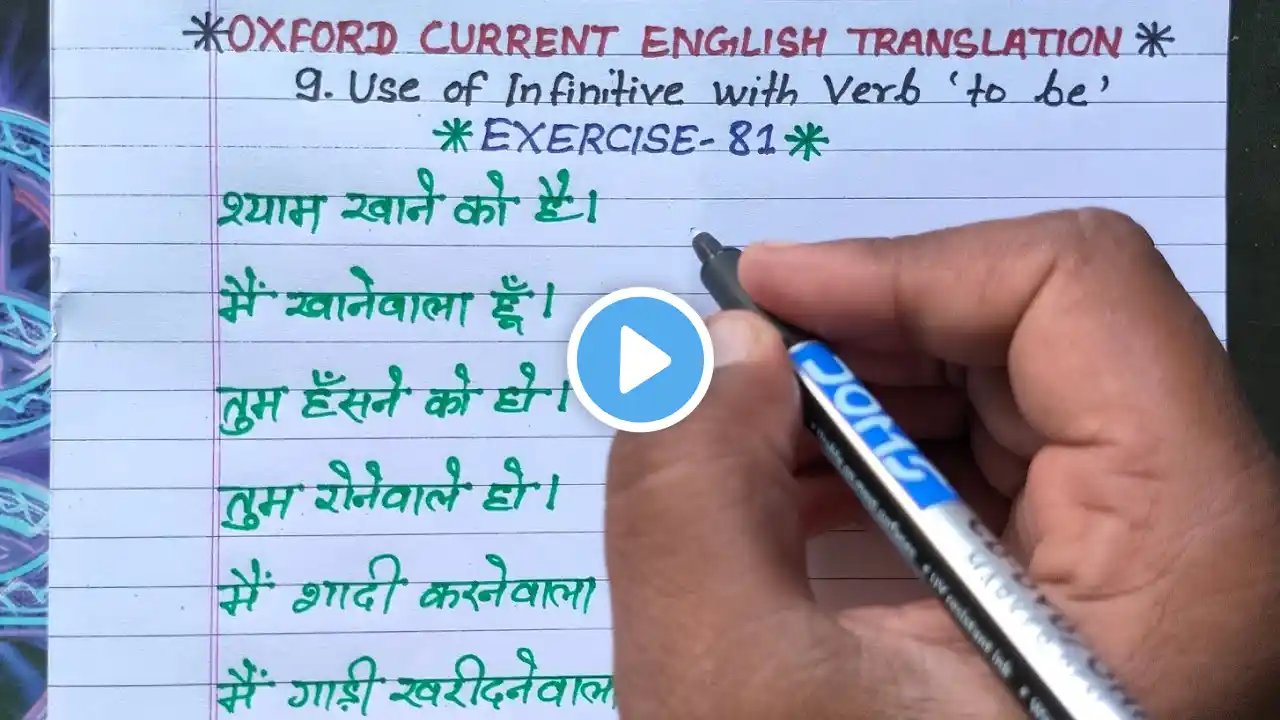 *OXFORD CURRENT ENGLISH TRANSLATION*
9. Use of Infinitive with Verb 'to be'
*EXERCISE-81*
श्याम खाने को है।
मैं खानेवाला हूँ।
तुम हँसने को हो।
तुम रोनेवाले हो।
मैं शादी करनेवाला
मैं गाड़ी खरीदनेवाला